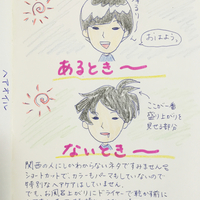 おはよう。
あるとき〜
ヘアオイル
ここが一番
盛り上がりを
見せる部分
ないとき〜
関西の人にしかわからないネタですみませんで
ショートカットで、カラーもパーマもしていないので
特別なヘアケアはしていません。
でも、お風呂上がりにドライヤーで乾かす前に